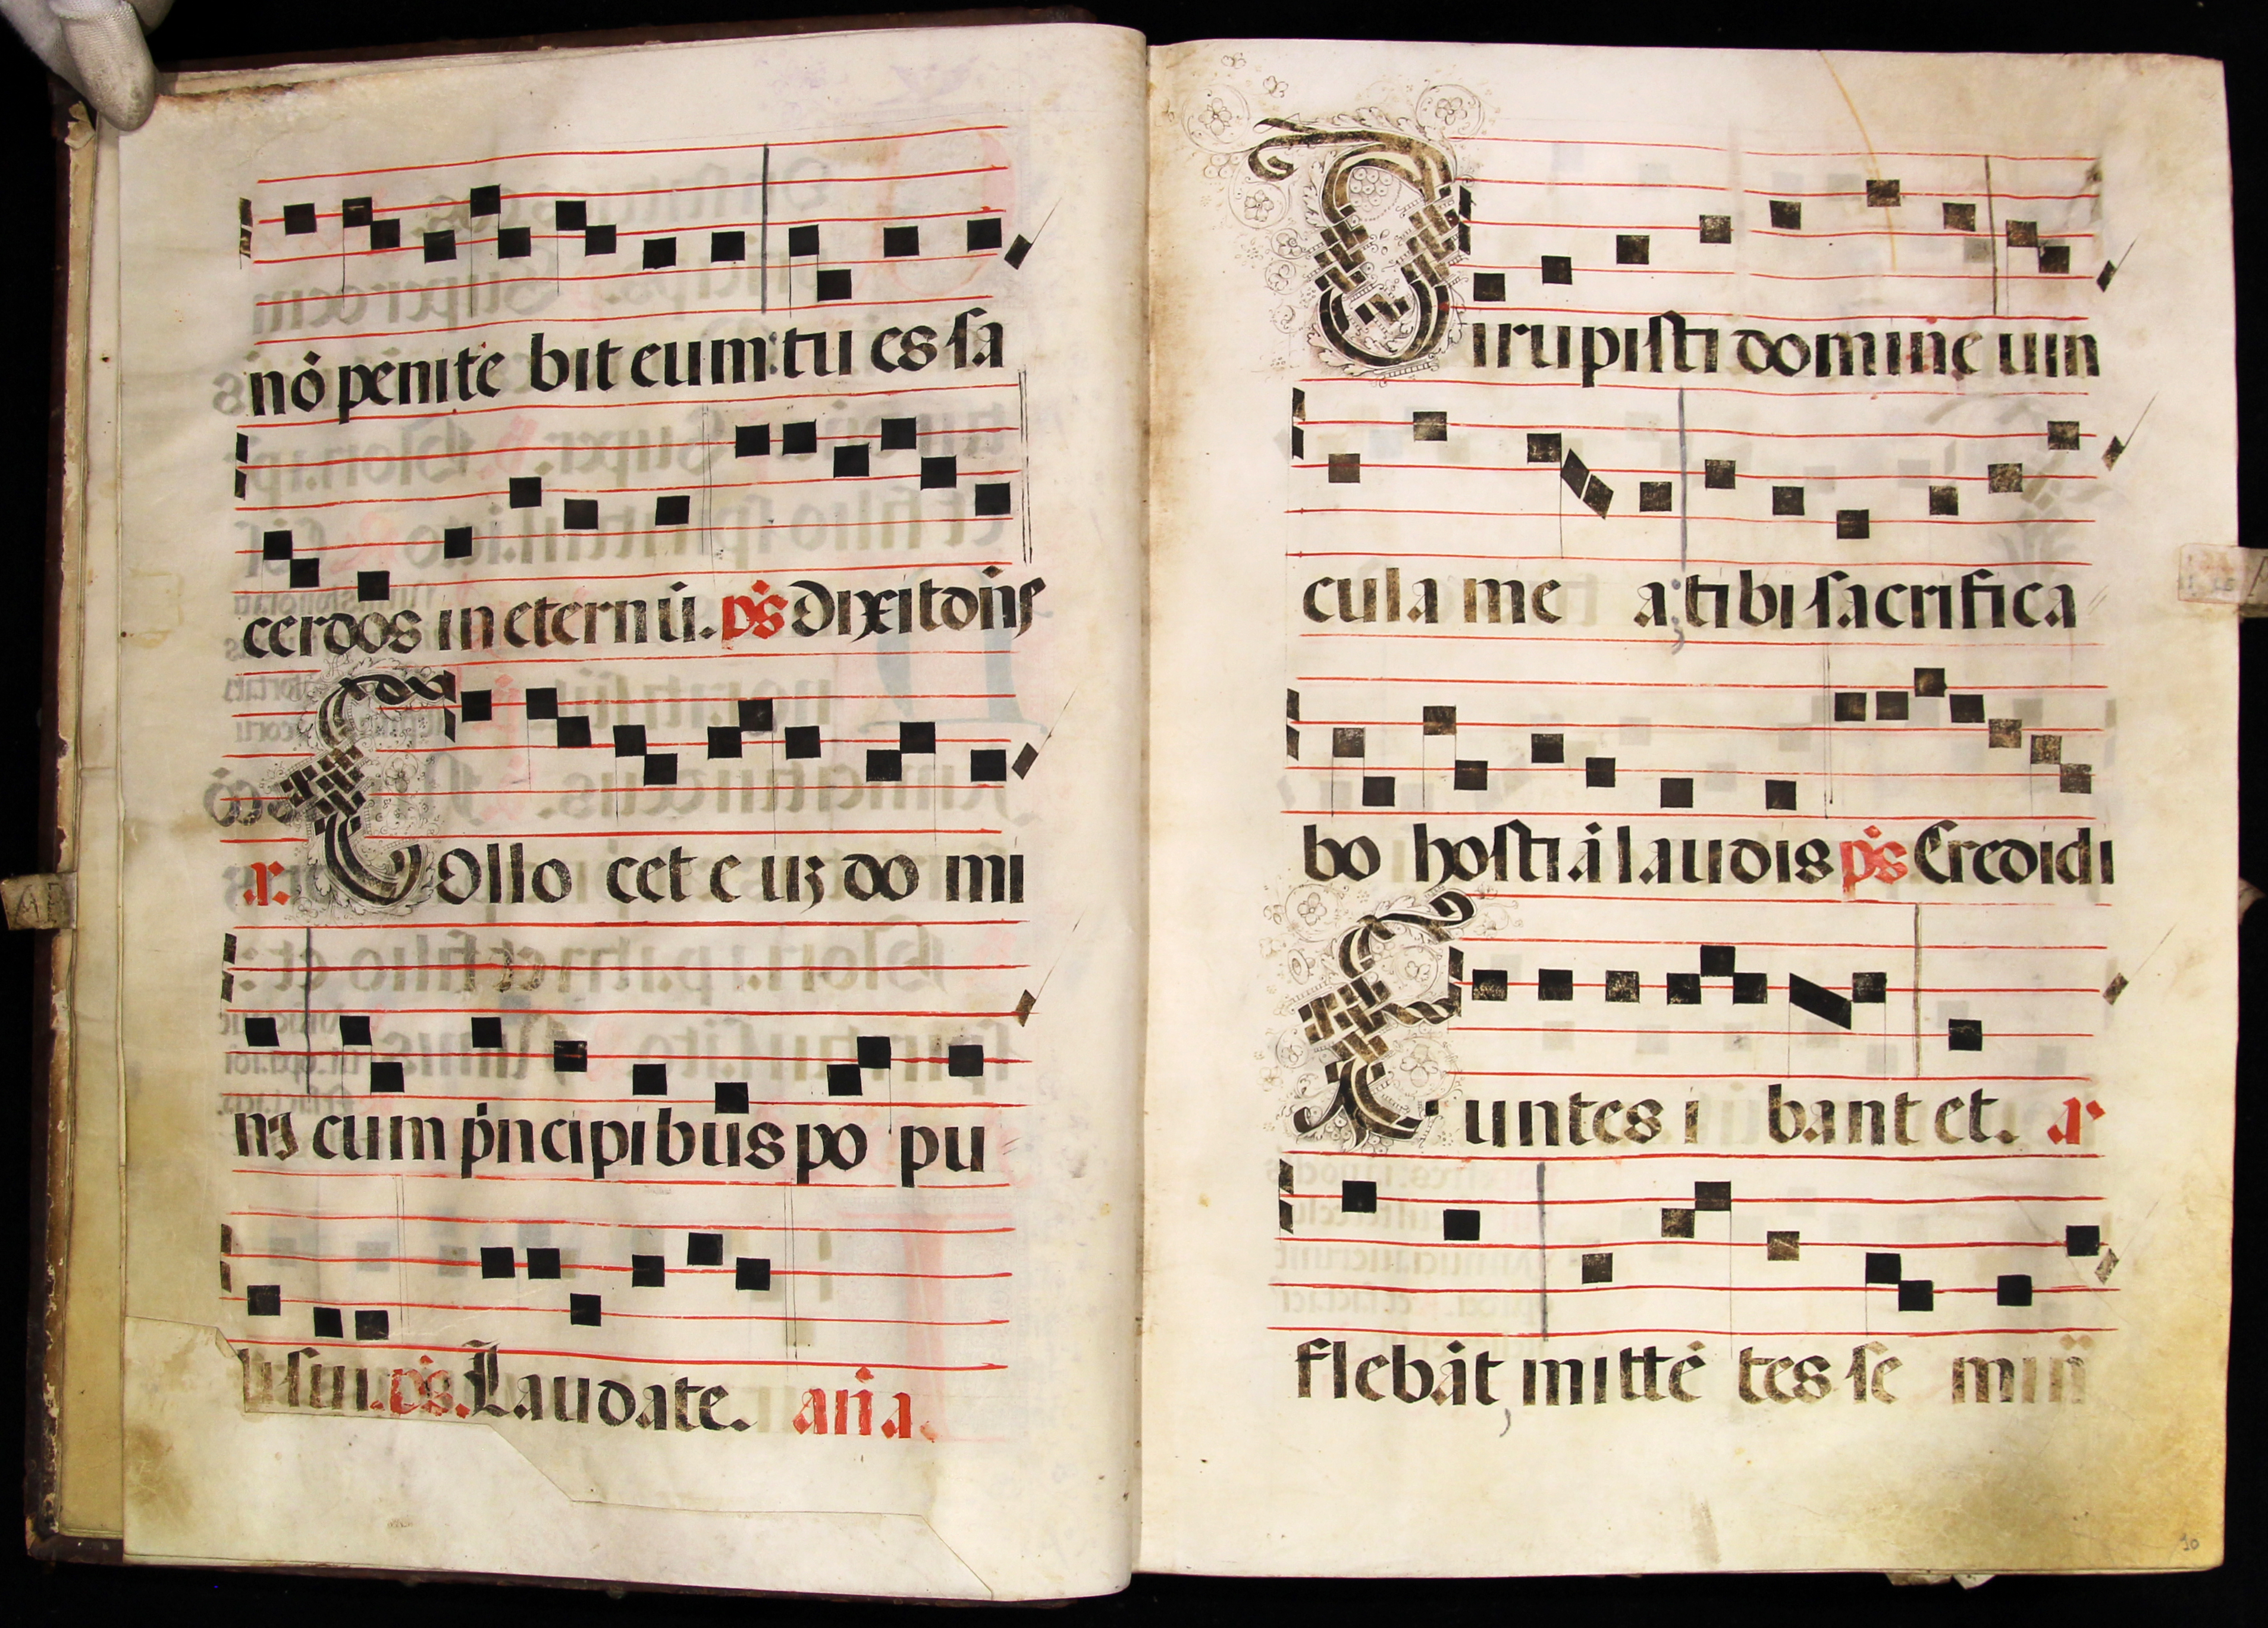 nō penite bit eum: tu es sa
cerdos in eternū. ps̄ Dixit dn̄s
a. Collo cet e uꝫ do mi
nꝰ cum pͥncipibus po pu
li sui. ps̄. Laudate. an̄a.
Dirupisti domine uin
cula me a; tibi sacrifica
bo hostiā laudis ps̄ Credidi
Euntes i bant et. a
flebāt, mittē tes se min̄
10